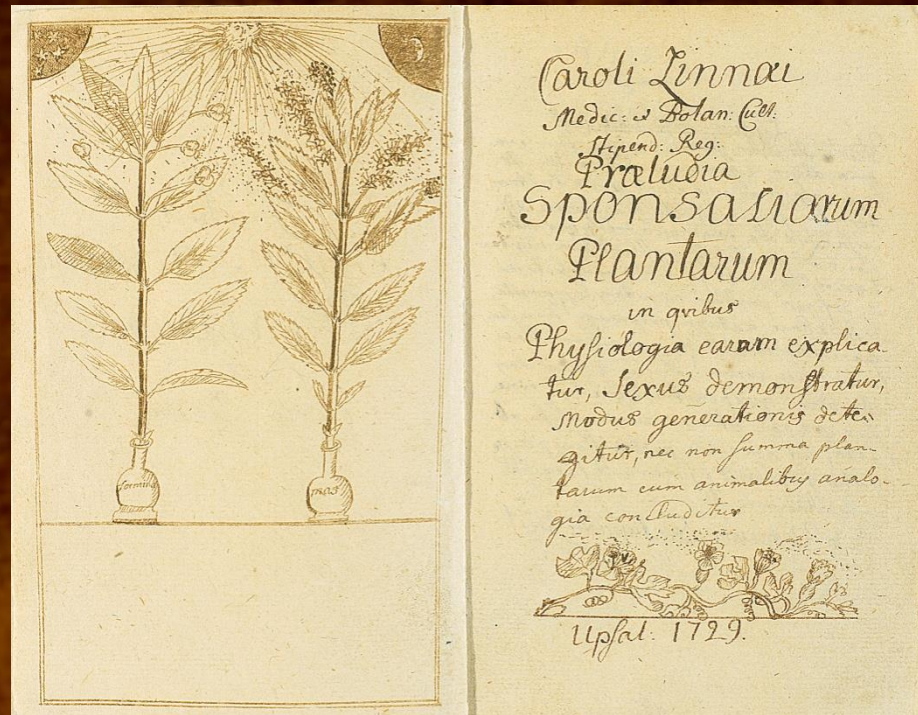 femina
mas
Caroli Linnæi
Medic: & Botan: Cult:
Stipend: Reg:
Præludia
Sponsaliarum
Plantarum
in qvibus
Physiologia earum explica-
tur, Sexus demonstratur,
Modus generationis dete-
gitur, nec non summa plan-
tarum cum animalibus analo-
gia concluditur
Upsal: 1729.